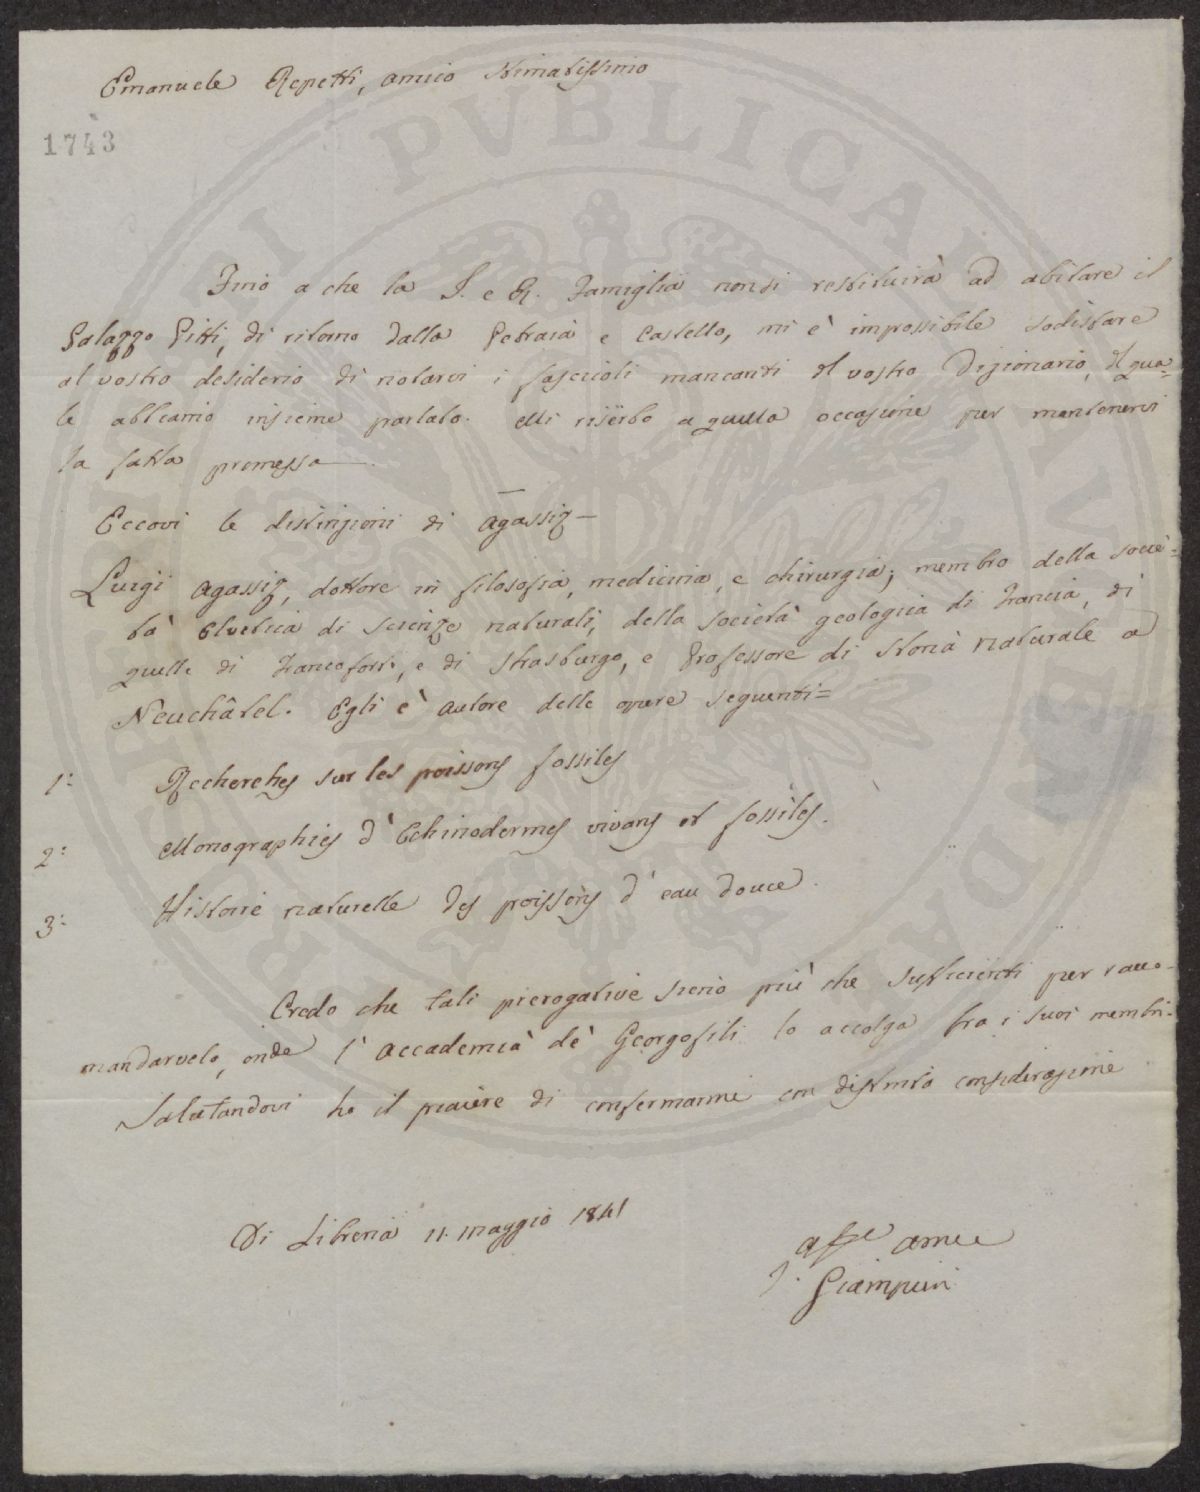 Emanuele Repetti, amico Stimatissimo
1743
Fino a che la I. e R. Famiglia non si restituirà ad abitare il
Palazzo Pitti, di ritorno dalla Petraia e Castello, mi è impossibile sodisfare
al vostro desiderio di notarvi i fascicoli mancanti al vostro Dizionario, del qua=
le abbiamo insieme parlato. Mi riserbo a quella occasione per mantenervi
la fatta promessa.
Eccovi le distinzioni di Agassiz –
Luigi Agassiz, dottore in filosofia, medicina, e chirurgia; membro della socie=
tà Elvetica di scienze naturali, della società geologica di Francia, di
quelle di Francoforte, e di Strasburgo, e Professore di storia naturale a
Neuchâtel. Egli è autore delle opere seguenti=
1: Recherches sur les poissons fossiles
2: Monographies d'Echinodermes vivans et fossiles.
3: Histoire naturelle des poissons d'eau douce.
Credo che tali prerogative sieno più che sufficienti per racco-
mandarvelo, onde l'Accademia de' Georgofili lo accolga fra i suoi membri.
Salutandovi ho il piacere di confermarmi con distinta considerazione
Di Libreria 11. maggio 1841
Giampieri
PVBLICAE